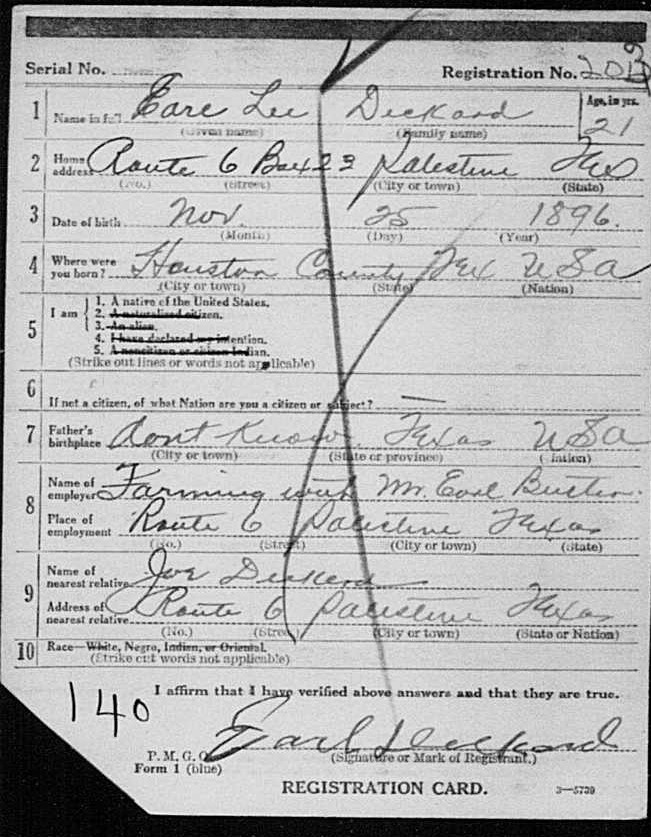 Serial No. Registration No. 2013
1 Name in full Earl Lee Deckard Age, in yrs.
(Given name) (Family name) 21
2 Home address Route 6 Box 23 Palestine Tex
(No.) (Street) (City or town) (State)
3 Date of birth Nov. 25 1896.
(Month) (Day) (Year)
4 Where were you born? Houston County Tex USA
(City or town) (State) (Nation)
5 I am
1. A native of the United States.
2. A naturalized citizen.
3. An alien.
4. I have declared my intention.
5. A noncitizen or citizen Indian.
(Strike out lines or words not applicable)
6 If not a citizen, of what Nation are you a citizen or subject? —
7 Father's birthplace Dont Know Texas USA
(City or town) (State or province) (Nation)
8 Name of employer Farming with Mr. Earl
Place of employment Route 6 Palestine Texas
(No.) (Street) (City or town) (State)
9 Name of nearest relative Joe Deckard
Address of nearest relative Route 6 Palestine Texas
(No.) (Street) (City or town) (State or Nation)
10 Race—White, Negro, Indian, or Oriental.
(Strike out words not applicable)
I affirm that I have verified above answers and that they are true.
140
Earl Deckard
P. M. G. O. (Signature or Mark of Registrant.)
Form 1 (blue)
REGISTRATION CARD. 3—5739